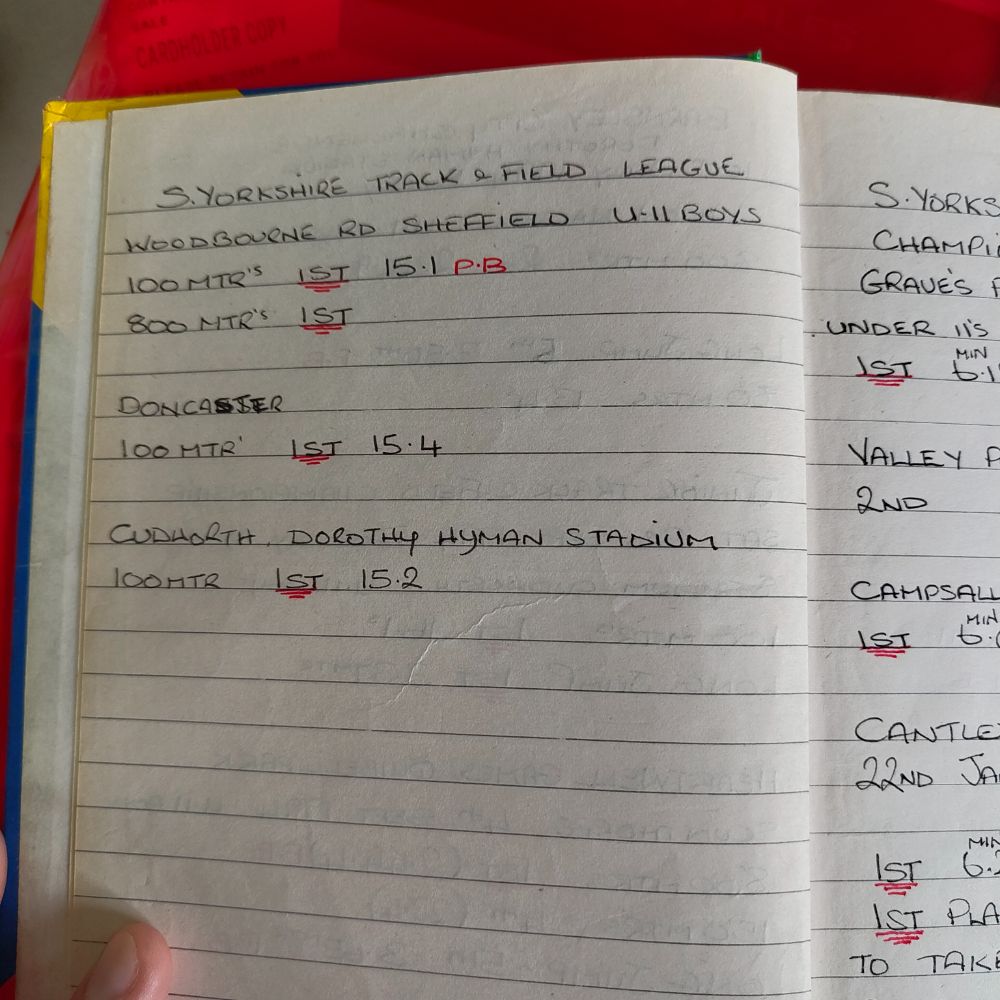 CARDHOLDER COPY
S.YORKSHIRE TRACK & FIELD LEAGUE
WOODBOURNE RD SHEFFIELD U-11 BOYS
100 MTR'S 1ST 15.1 P.B
800 MTR'S 1ST
DONCASTER
100 MTR' 1ST 15.4
CUDWORTH, DOROTHY HYMAN STADIUM
100 MTR 1ST 15.2
S.YORKS
CHAMPI
GRAVE'S
UNDER 11'S
1ST MIN
VALLEY P
2ND
CAMPSALL
1ST MIN
CANTLE
22ND JA
1ST MIN
1ST PLA
TO TAKE